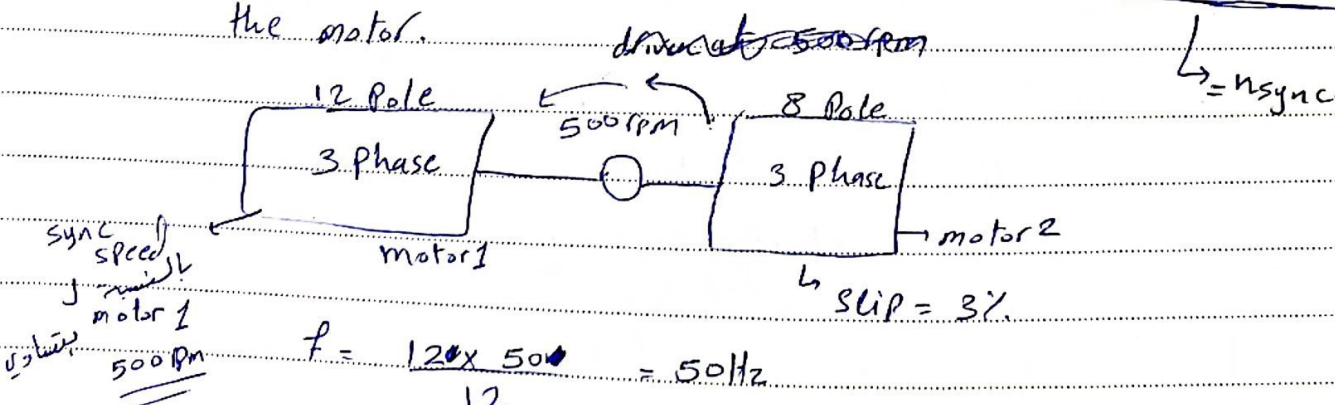 the motor.
driven at 500 rpm
= nsync
12 Pole
500 rpm
8 Pole
3 Phase
3 Phase
motor 1
motor 2
sync speed
بالنسبة ل
motor 1
بتساوي
500 rpm
Slip = 3%.
f = 120 x 500 = 50 Hz
12